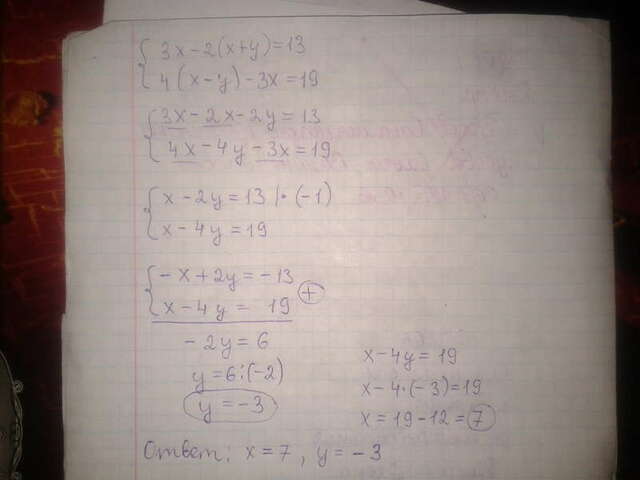 3x-2(x+y)=13
4(x-y)-3x=19
3x-2x-2y=13
4x-4y-3x=19
x-2y=13 |·(-1)
x-4y=19
-x+2y=-13
x-4y= 19 +
-2y=6
y=6:(-2)
y=-3
x-4y=19
x-4·(-3)=19
x=19-12=7
Ответ: x=7, y=-3